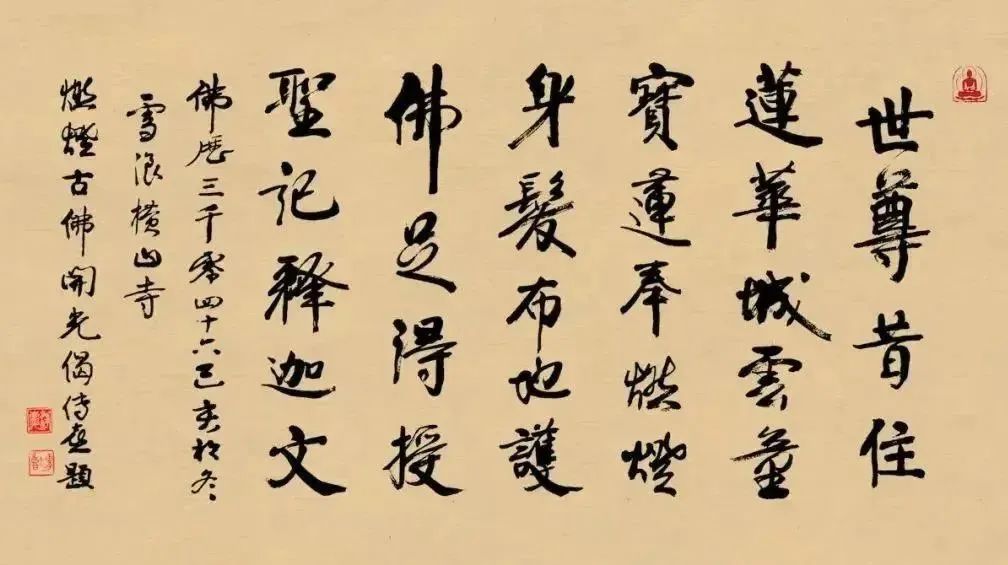 世尊昔住
蓮華城雲童
寶蓮奉燃燈
身髮布地護
佛足得授
聖記釋迦文
佛歷三千零四十六己亥冬
雪浪橫山寺
燃燈古佛開光偈傳喜題